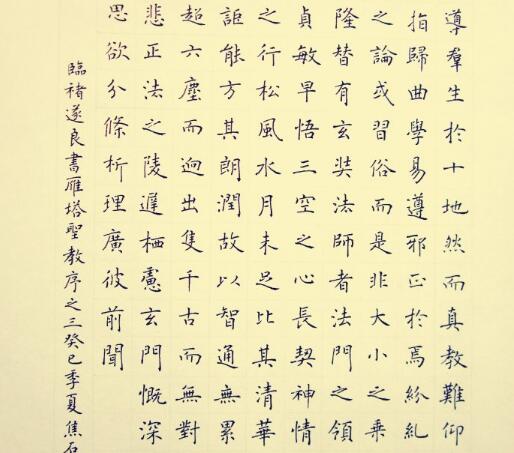 導羣生於十地然而真教難仰
指歸曲學易遵邪正於焉紛糺
之論或習俗而是非大小之乘
隆替有玄奘法師者法門之領
貞敏早悟三空之心長契神情
之行松風水月未足比其清華
詎能方其朗潤故以智通無累
超六塵而迥出隻千古而無對
悲正法之陵遲栖慮玄門慨深
思欲分條析理廣彼前聞
臨褚遂良書雁塔聖教序之三癸巳季夏焦石